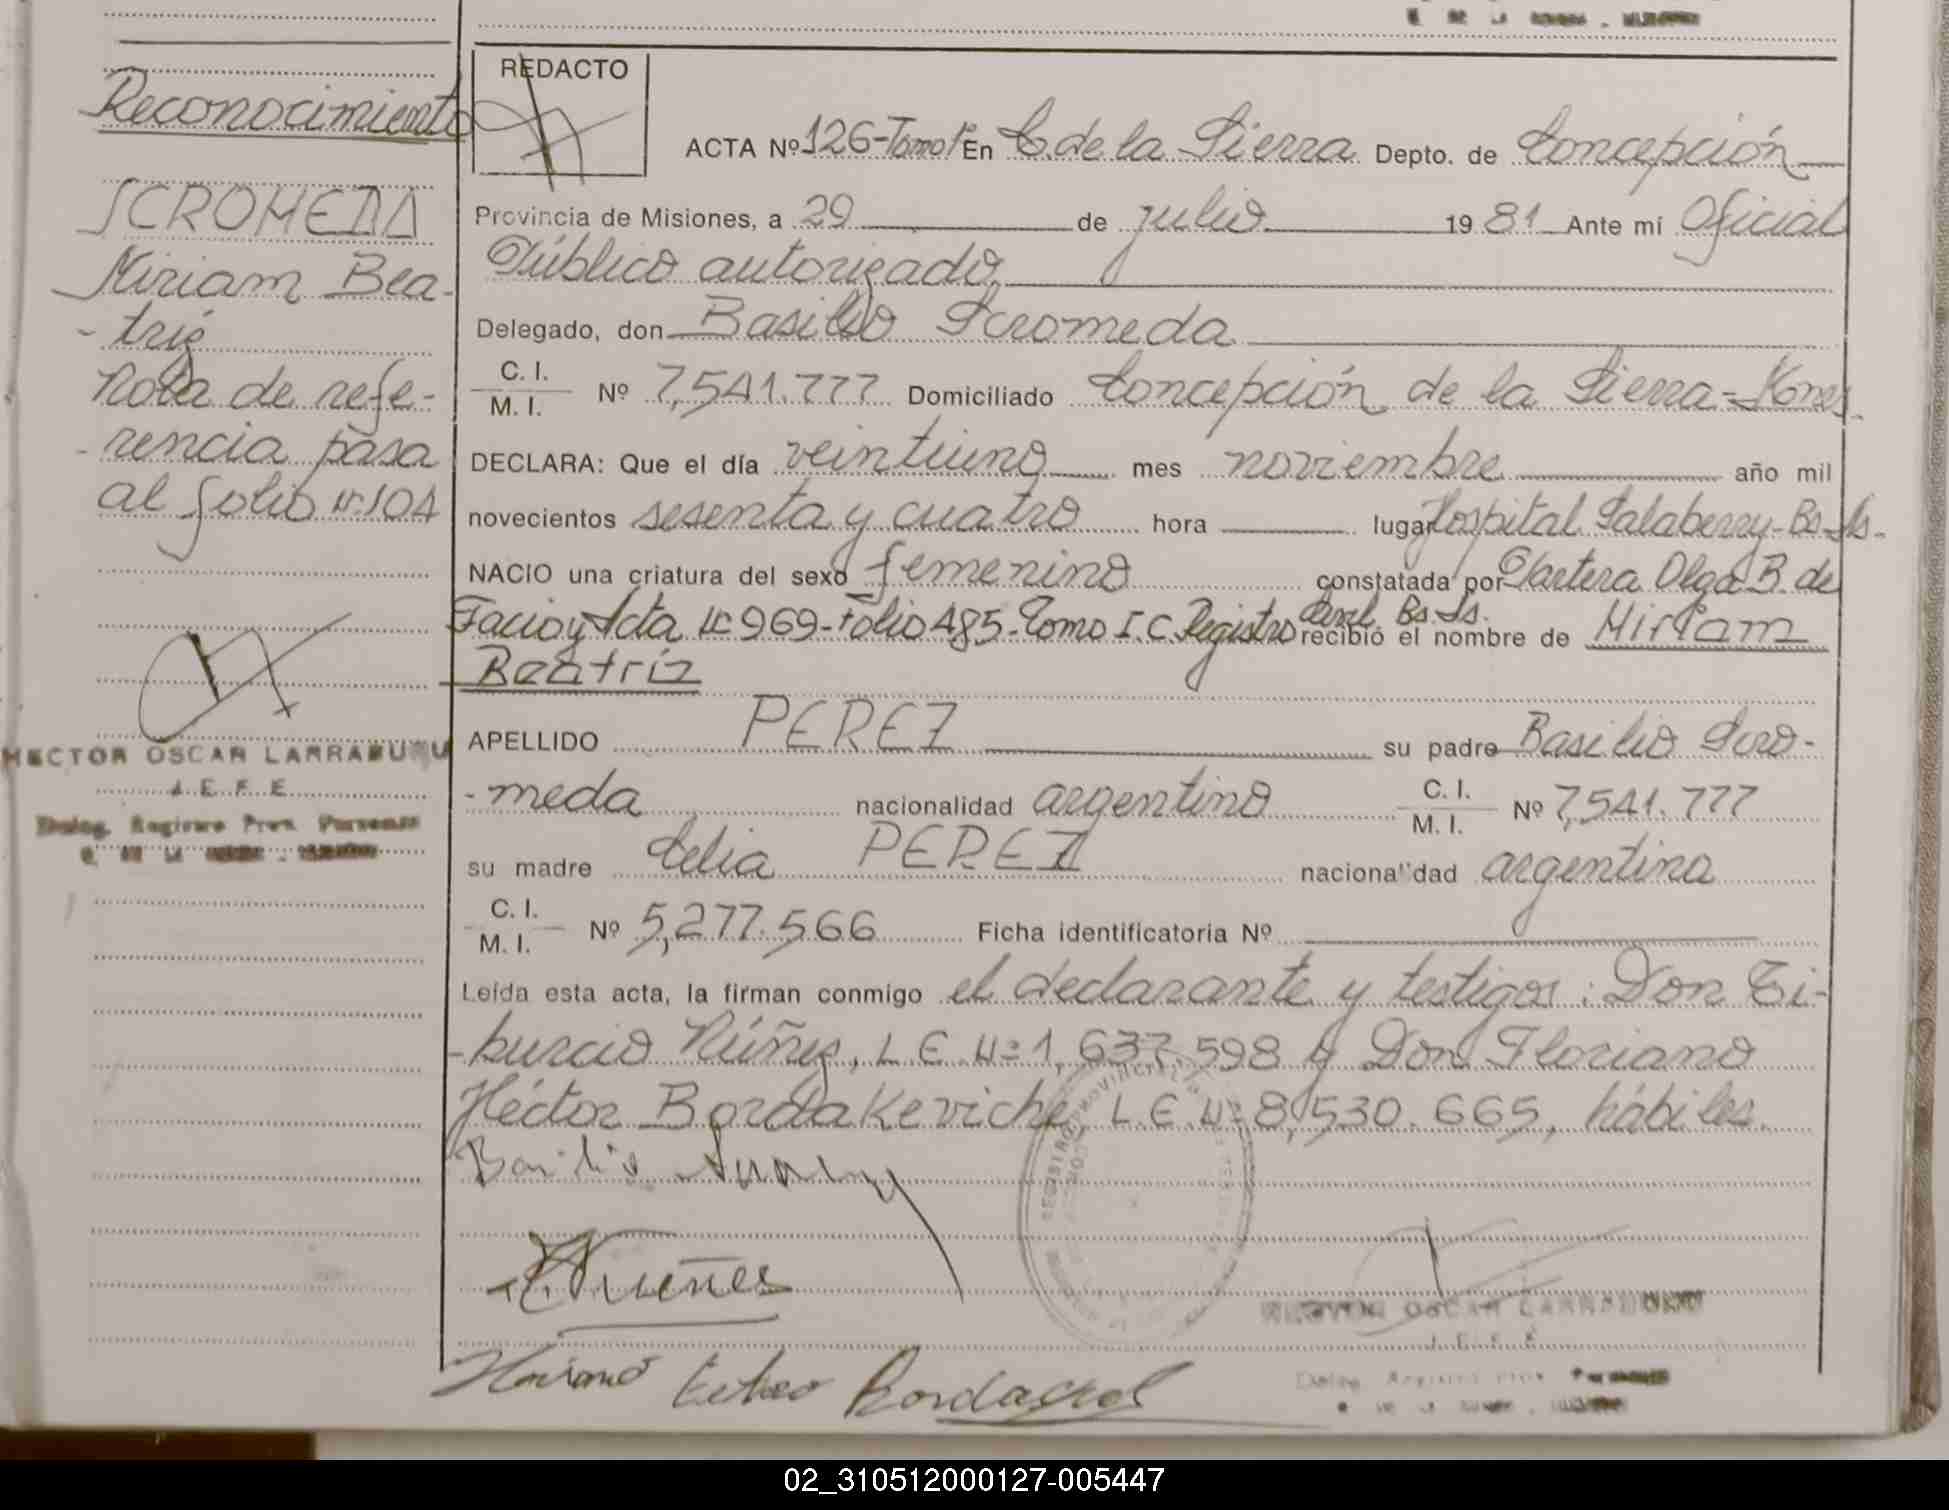 Reconocimiento
SCROMEDA
Miriam Bea-
-triz
Nota de refe-
-rencia pasa
al folio Nº 104
HECTOR OSCAR LARRABURU
J. E. F. E
REDACTO
ACTA Nº 126-Tomo 1º En C. de la Sierra Depto. de Concepción
Provincia de Misiones, a 29 de julio 1981 Ante mí Oficial
Público autorizado,
Delegado, don Basilio Scromeda
C. I.
M. I. Nº 7,541.777 Domiciliado Concepción de la Sierra-Mnes.
DECLARA: Que el día veintiuno mes noviembre año mil
novecientos sesenta y cuatro hora lugar Hospital Salaberry-Bs-As-
NACIO una criatura del sexo femenino constatada por Partera Olga B. de
Facio y Acta Nº 969-Folio 485-Tomo I. C. Registro Civil Bs.As. recibió el nombre de Miriam
Beatriz
APELLIDO PEREZ su padre Basilio Scro-
-meda nacionalidad argentino C. I.
M. I. Nº 7,541.777
su madre Celia PEREZ nacionalidad argentina
C. I.
M. I. Nº 5,277.566 Ficha identificatoria Nº
Leída esta acta, la firman conmigo el declarante y testigos: Don Ti-
-burcio Núñez, L E Nº 1,637,598 y Don Floriano
Héctor Bordakeviche L.E.Nº 8,530.665, hábiles.
Basilio
Nuenes
OSCAR LARRABURU
J. E. F. E
02_310512000127-005447